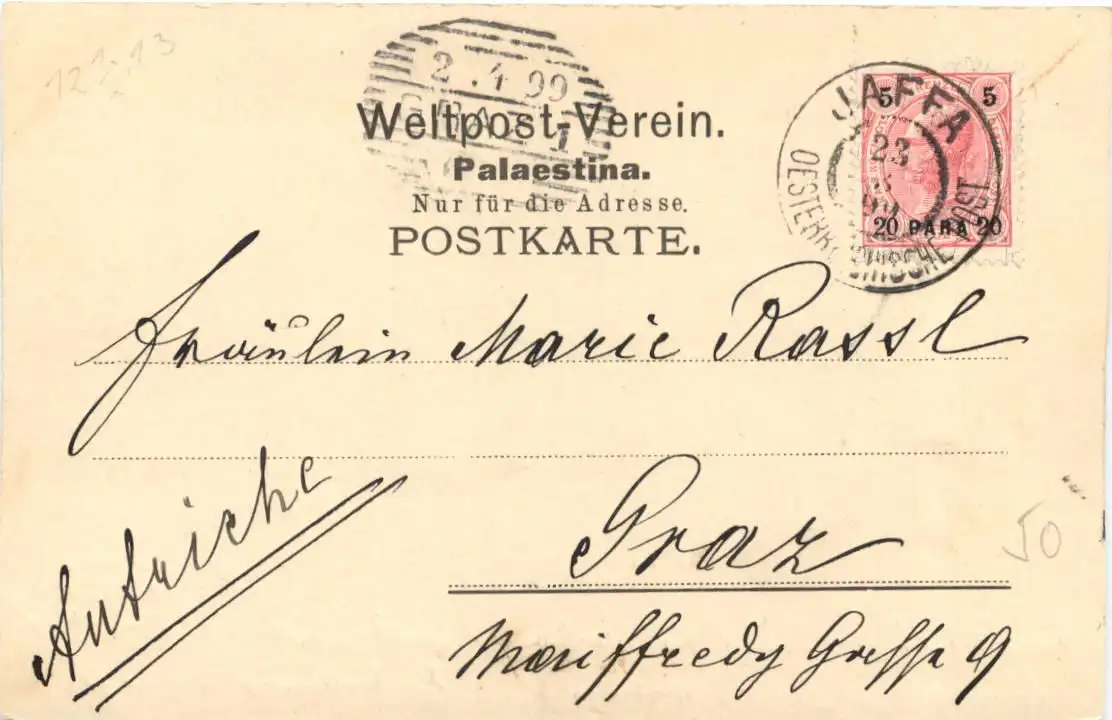 12 1/2 13
2.4 99
GRAZ 1
Weltpost-Verein.
Palaestina.
Nur für die Adresse.
POSTKARTE.
5 5
20 PARA 20
JAFFA
23
3
99
OESTERREICHISCHE POST
Fräulein Marie Rassl
Graz
Mariffredy Gasse 9
Autriche
50